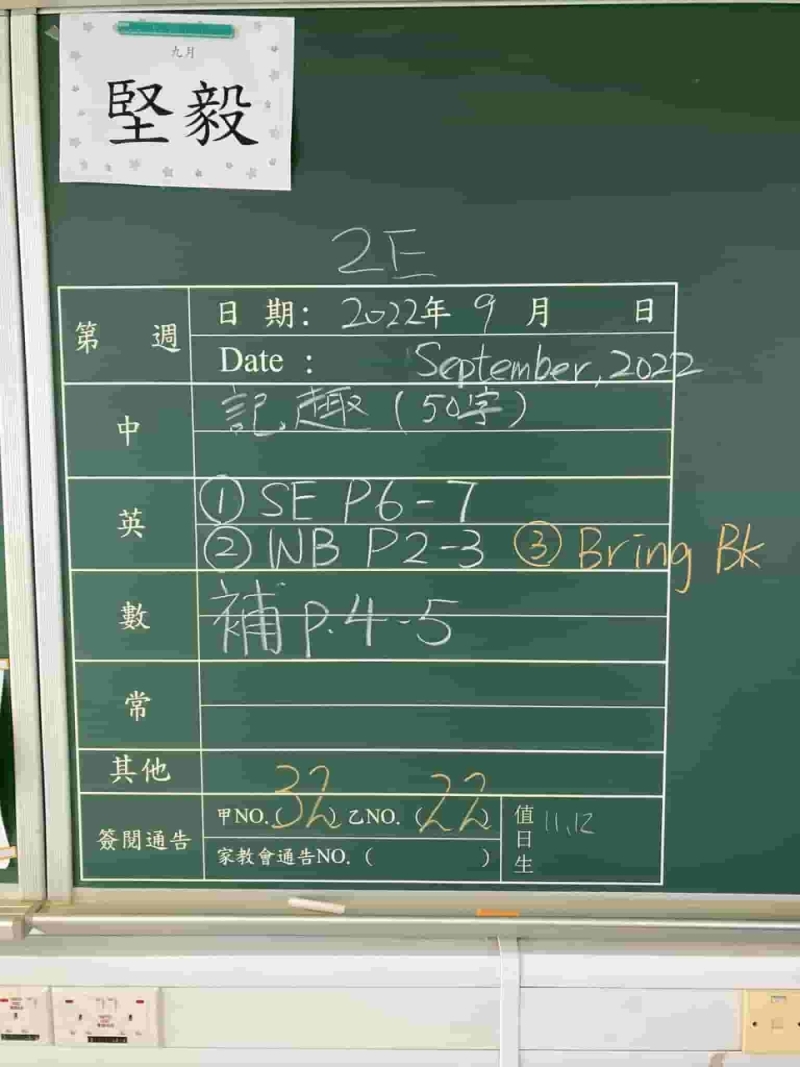 九月
堅毅
2E
第 週
日 期： 2022年 9 月 日
Date : September, 2022
中
記趣（50字）
英
① SE P6-7
② WB P2-3 ③ Bring Bk
數
補 p.4-5
常
其他
簽閱通告
甲NO.(32) 乙NO. (22)
家教會通告NO. ( )
值日生 11,12